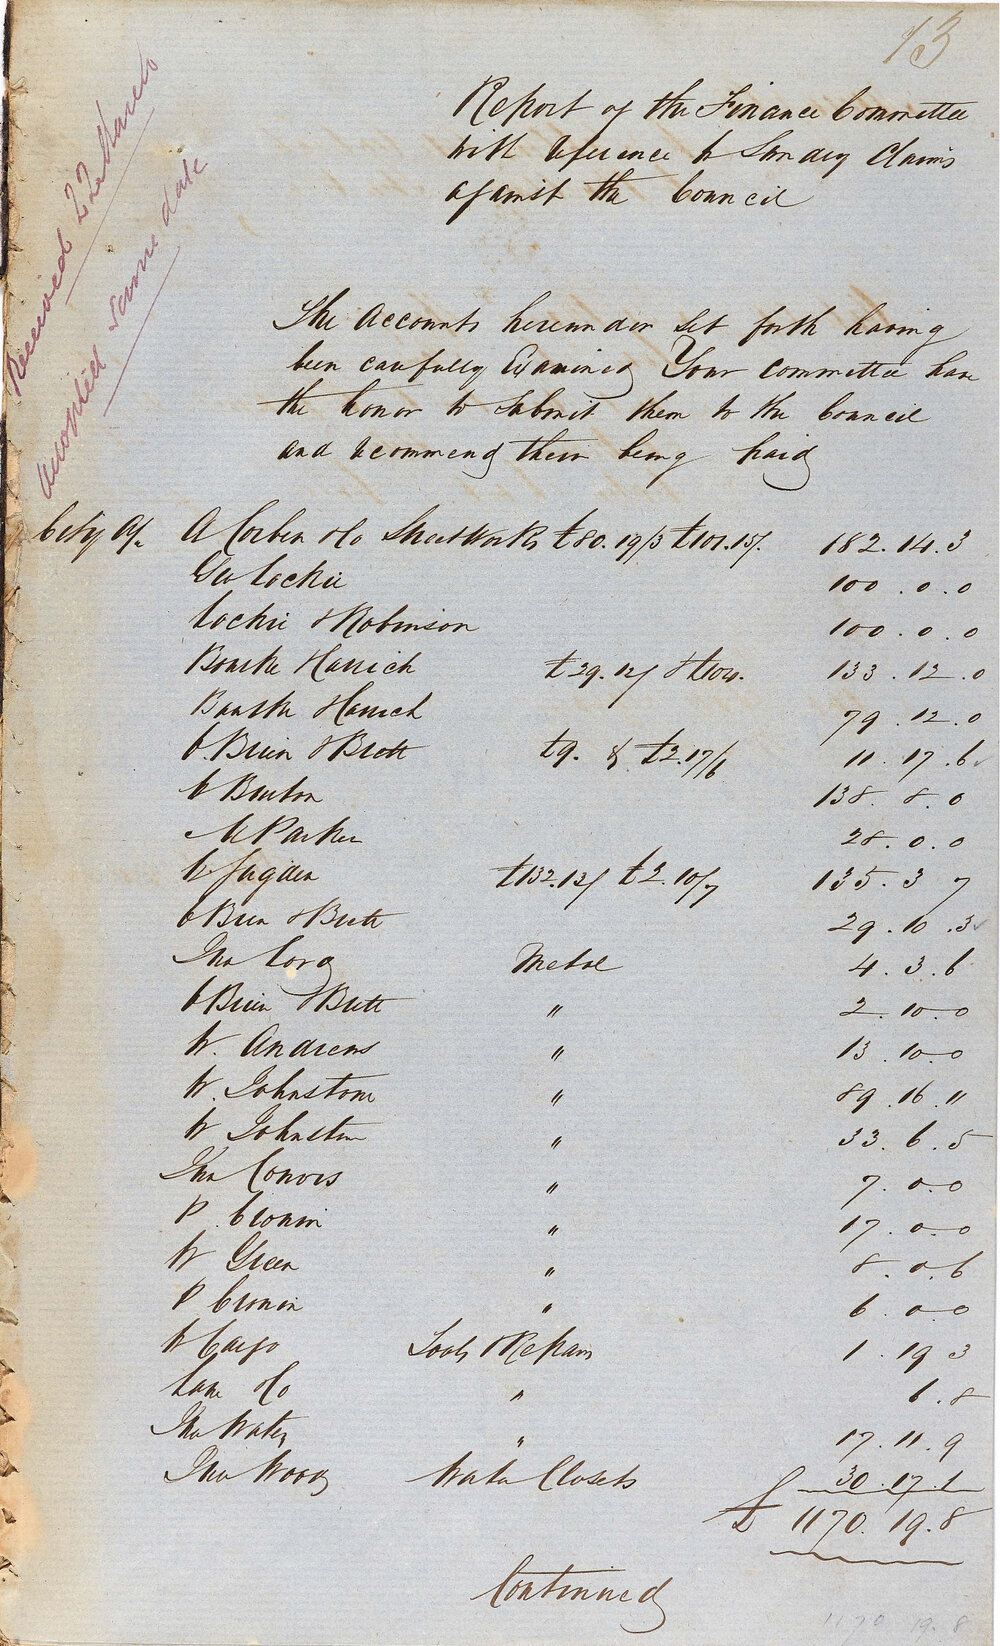 13
Received 22 March
adopted same date
Report of the Finance Committee
with reference to Sundry Claims
against the Council
The Accounts hereunder set forth having
been carefully Examined Your Committee have
the honor to submit them to the Council
and recommend them being paid
City A/c A Corben & Co Street Works £80.19/3 £101.15/. 182.14.3
Geo Lockie 100.0.0
Lockie & Robinson 100.0.0
Bourke Harrich £29.12/ & £104. 133.12.0
Bourke Harrich 79.12.0
O.Brien & Brett £9. & £2.17/6 11.17.6
Burton 138.8.0
Parker 28.0.0
£132.13/ £2.10/7 135.3 7
OBrien & Brett 29.10.3
Jno Cory Metal 4.3.6
OBrien & Brett " 2.10.0
W. Andrews " 13.10.0
W. Johnstone " 89.16.11
W Johnston " 33.6.5
Jno Conors " 7.0.0
P. Cronin " 17.0.0
W Green " 8.0.6
P Cronin " 6.0.0
W Cargo Tools & Repairs 1.19 3
Lane & Co " 6.8
Jno " 17.11.9
Jno Wood Water Closets 30.17.1
£ 1170.19.8
Continued
1170 19.8